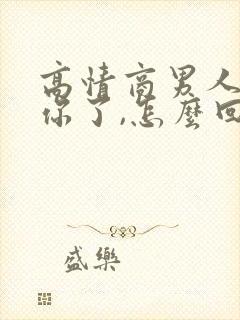 高情商男人
你了,怎麼回
盛樂